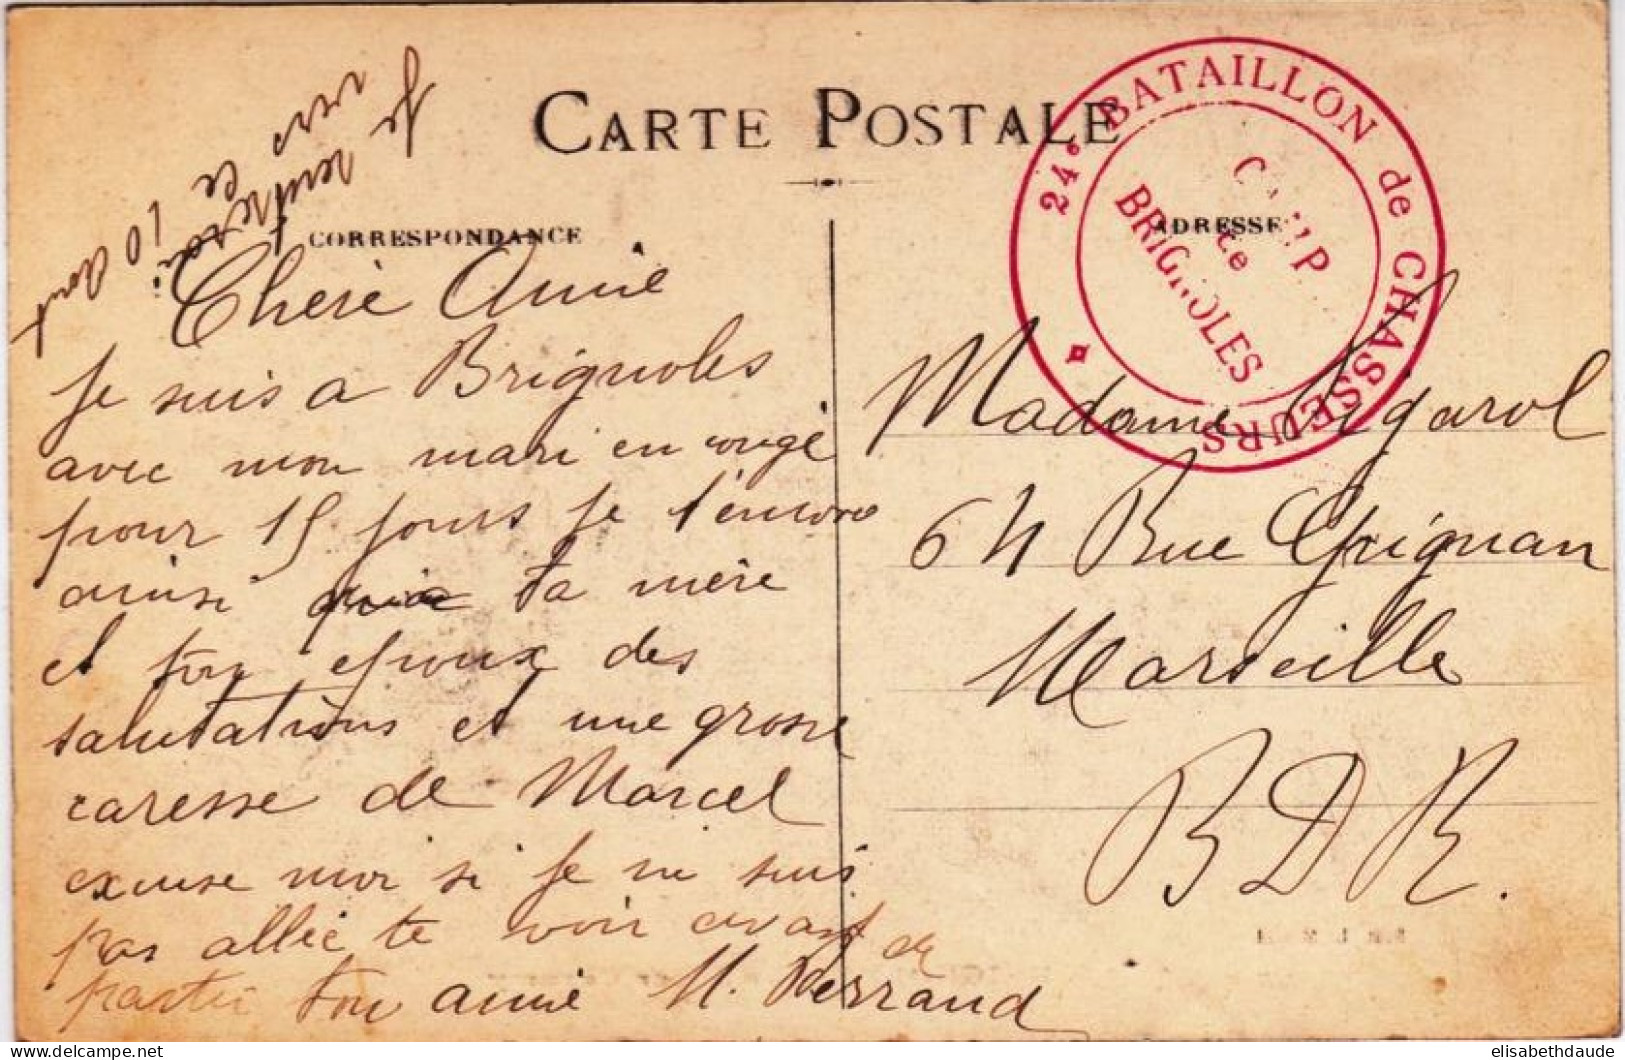 CARTE POSTALE
CORRESPONDANCE
ADRESSE
24e BATAILLON de CHASSEURS
CAMP
de
BRIGNOLES
Je rentrerai
vers le 10 Aout
Cheré Amie
Je suis a Brignoles
avec mon mari en congé
pour 15 jours je t'envoie
ainsi qu'a ta mère
et ton epoux des
salutations et une grosse
caresse de Marcel
excuse moi si je ne suis
pas allée te voir avant de
partir ton amie M. Ferrand
Madame Vigarol
64 Rue Grignan
Marseille
B D R.
elisabethdaude